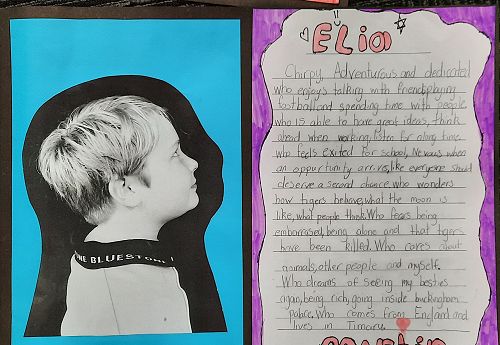 ELia
Chirpy, Adventurous and dedicated
who enjoys talking with friends, playing
football and spending time with people
who is able to have great ideas, think
ahead when working, listen for a long time.
Who feels exited for school, Nervous when
an oppurtunity arrives, like everyone should
deserve a second chance, who wonders
how tigers behave, what the moon is
like, what people think. Who fears being
embarrased, being alone and that tigers
have been killed. Who cares about
animals, other people and myself.
Who dreams of seeing my besties
again, being rich, going inside buckingham
palace. Who comes from England and
lives in Timaru.
THE BLUESTONE